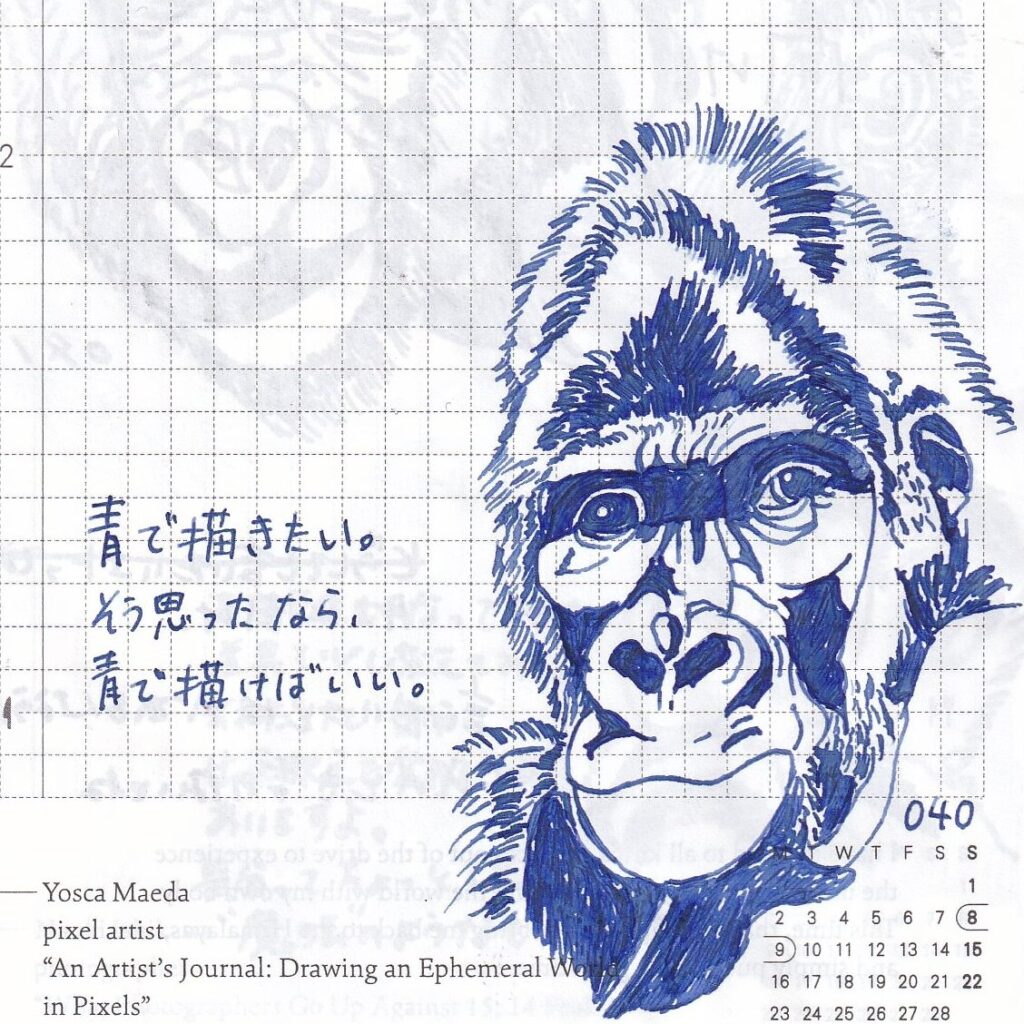 2
青で描きたい。
そう思ったなら、
青で描けばいい。
1
040
M T W T F S S
1
2 3 4 5 6 7 8
9 10 11 12 13 14 15
16 17 18 19 20 21 22
23 24 25 26 27 28
Yosca Maeda
pixel artist
“An Artist’s Journal: Drawing an Ephemeral World
in Pixels”